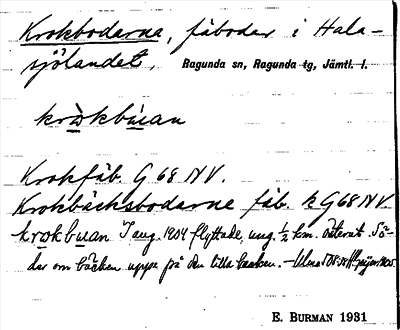 Krokbodarna, fäbodar i Hala-
sjölandet, Ragunda sn, Ragunda tg, Jämtl. l.
kròkbùan
Krokfäb. G 68 NV.
Krokbäcksbodarne fäb. k G68 NV
krokbuan I aug. 1904 flyttade, ung. ½ km. österut. Sö-
der om bäcken uppe på den lilla backen.
E. BURMAN 1931